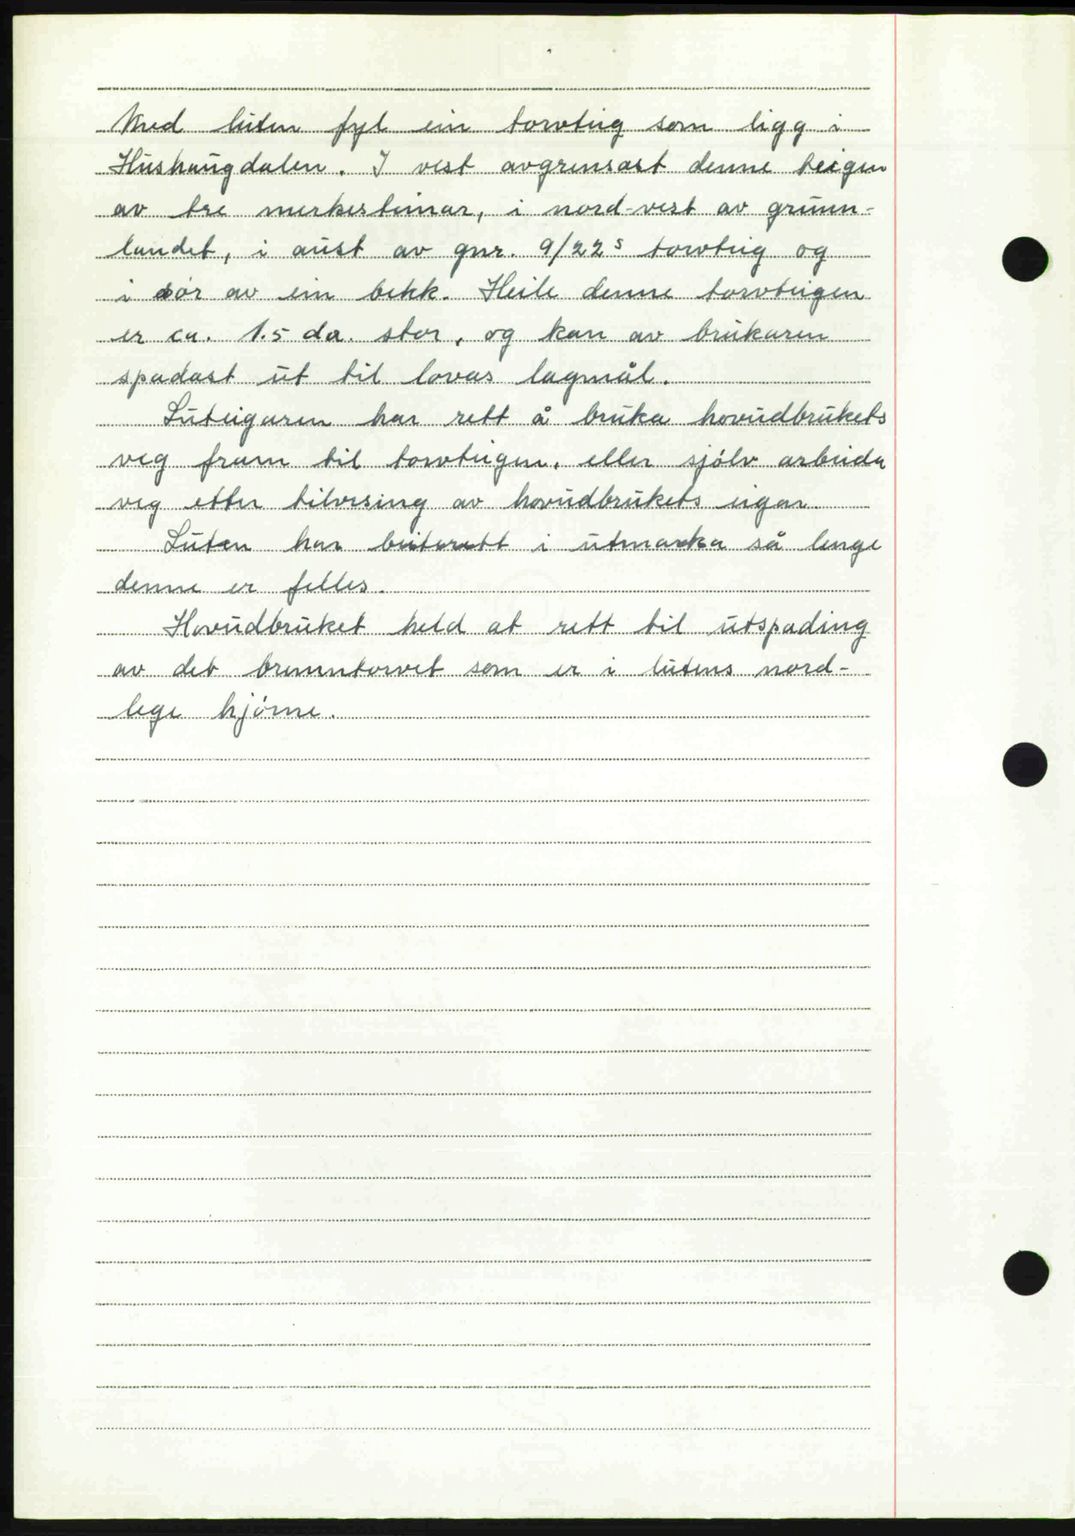 Med luten fyl ein torvteig som ligg i
Hushaugdalen. I vest avgrensast denne teigen
av tre merkesteinar, i nord-vest av grunn-
landet, i aust av gnr. 9/22s torvteig og
i sør av ein bekk. Heile denne torvteigen
er ca. 1.5 da. stor, og kan av brukaren
spadast ut til lovas lagmål.
Luteigaren har rett å bruka hovudbrukets
veg fram til torvteigen, eller sjølv arbeida
veg etter tilvising av hovudbrukets eigar.
Luten har beiterett i utmarka så lenge
denne er felles.
Hovudbruket held at rett til utspading
av det brenntorvet som er i lutens nord-
lege hjørne.